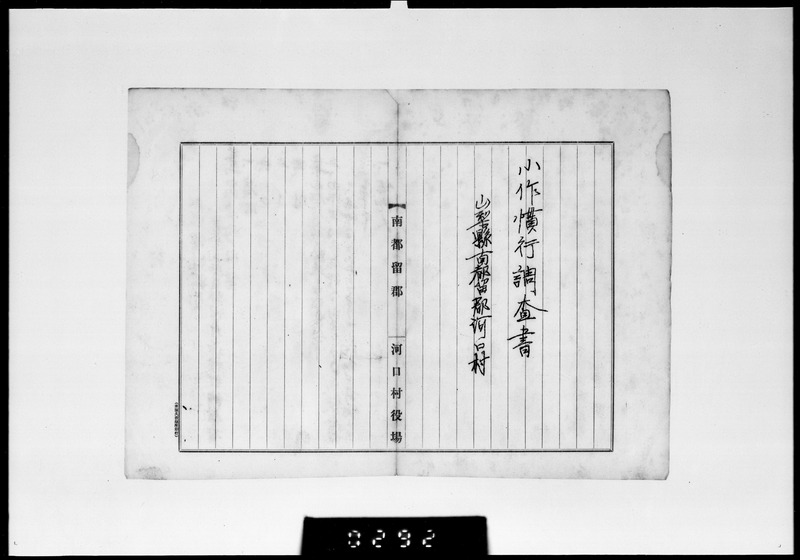 小作慣行調査書
山梨縣南都留郡河口村
南都留郡 河口村役場
0292